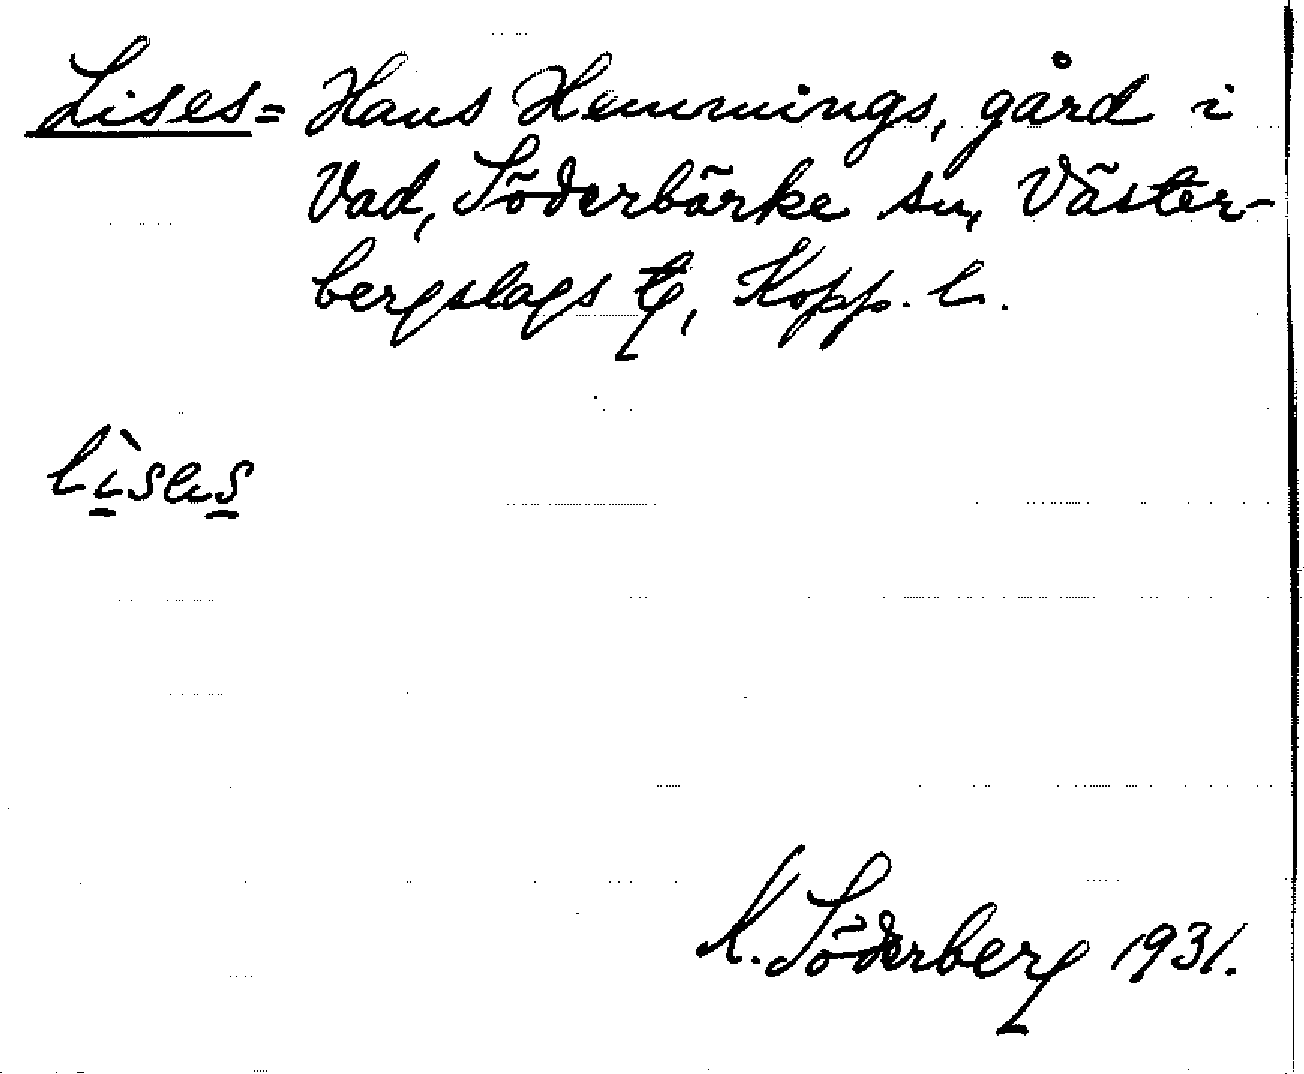 Lises= Hans Hemmings, gård i
Vad, Söderbärke sn, Väster-
bergslags tg, Kopp. l.
lìses
K. Söderberg 1931.